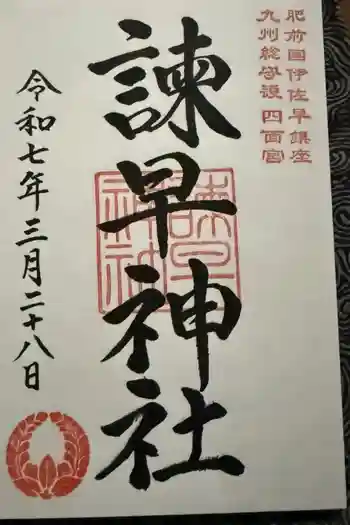 肥前国伊佐早鎮座
九州総守護 四面宮
諫早神社
諫早神社
令和七年三月二十八日